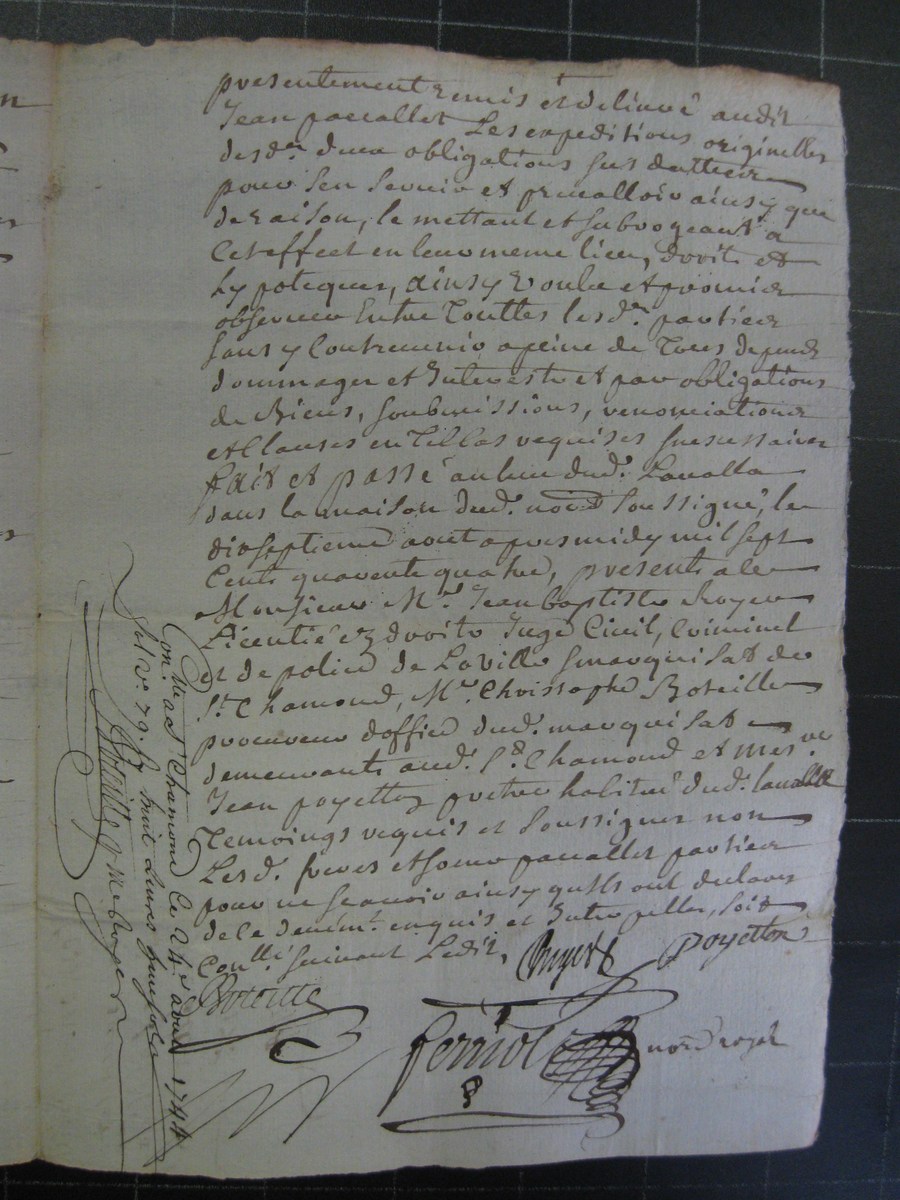 presentement remis et delivré audit
Jean pacallet Les expeditions originelles
desd. deux obligations sus dattees
pour sen servir et prevalloir ainsy que
de raison, le mettant et subrogeant a
Cet effect en leur meme lieu, droits et
hypoteques, ainsy Voulu et promis
observer Entre Touttes lesd. parties
sans y Contrevenir a peine de Tous depends
dommages et Interests et par obligations
de Biens, soubmissions, renonciations
et Clauses en Tel Cas requises & necessaires
fait et passé au lieu dud. Lavalla
dans la maison dud. no.re Soussigné, le
dixseptieme aout apres midy mil sept
Cents quarente quatre, presents a ce
Monsieur M.r Jean baptiste Royer
Licentié ez droits Juge Civil, Criminel
et de police de La Ville & marquisat de
S.t Chamond, M.re Christophe Boteille
procureur doffice dud. marquisat
demeurants aud. S.t Chamond et mes.re
Jean poyetton pretre habitué dud. lavalla
Temoings requis et Soussignes non
Lesd. freres et soeur pacallet parties
pour ne scavoir ainsy quils ont declaré
de ce deuem.t enquis et Interpelles, soit
Con.llé suivant Ledit,
Royer
poyetton
Boteille
ferriol
no.re royal
Con.llé a S.t Chamond Ce 24.e aout 1744
fol. v.o 79. R. huit Livres